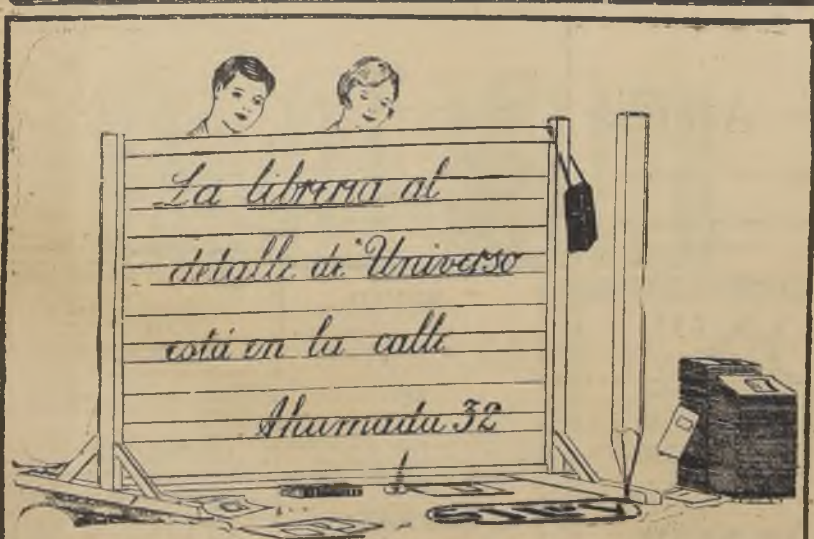 La libreria al
detalle de Universo
está en la calle
Ahumada 32